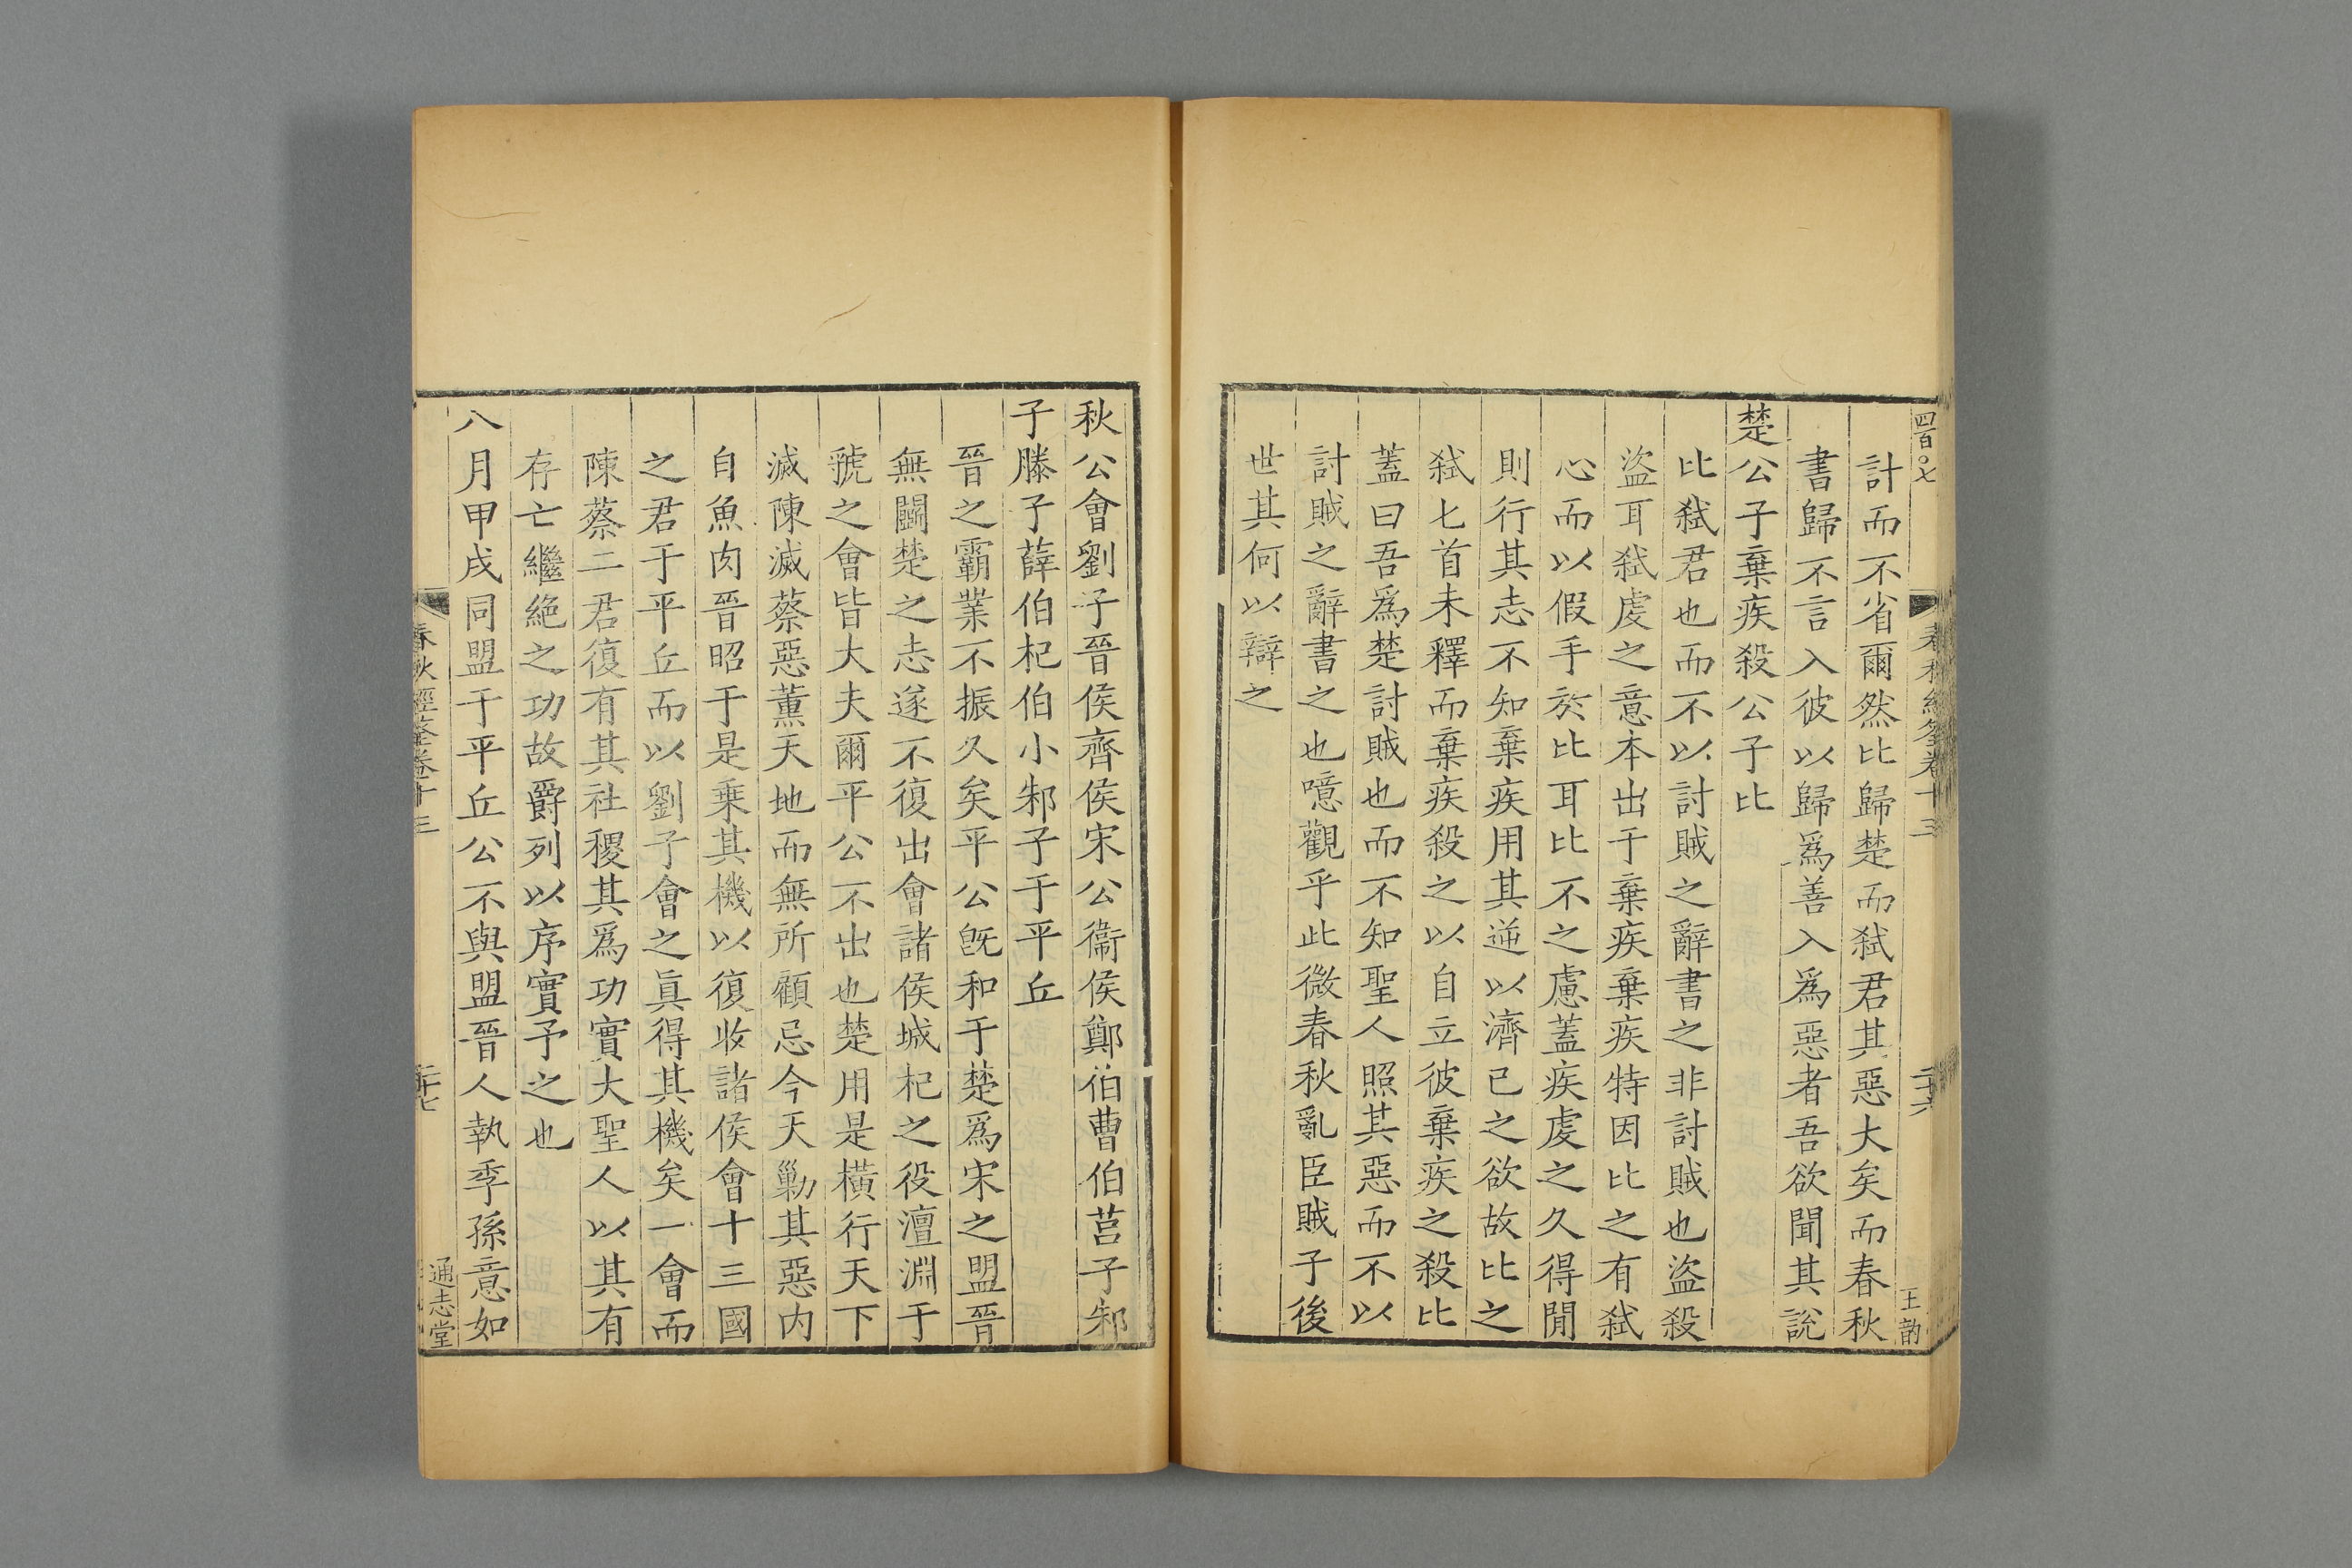 四百〇七
春秋經筌卷十三
二十六
王韵
計而不省爾然比歸楚而弑君其惡大矣而春秋
書歸不言入彼以歸爲善入爲惡者吾欲聞其說
楚公子棄疾殺公子比
比弑君也而不以討賊之辭書之非討賊也盜殺
盜耳弑虔之意本出于棄疾棄疾特因比之有弑
心而以假手於比耳比不之慮蓋疾虔之久得閒
則行其志不知棄疾用其逆以濟已之欲故比之
弑匕首未釋而棄疾殺之以自立彼棄疾之殺比
蓋曰吾爲楚討賊也而不知聖人照其惡而不以
討賊之辭書之也噫觀乎此微春秋亂臣賊子後
世其何以辯之
秋公會劉子晉侯齊侯宋公衞侯鄭伯曹伯莒子邾
子滕子薛伯杞伯小邾子于平丘
晉之霸業不振久矣平公旣和于楚爲宋之盟晉
無鬭楚之志遂不復出會諸侯城杞之役澶淵于
虢之會皆大夫爾平公不出也楚用是橫行天下
滅陳滅蔡惡薰天地而無所顧忌今天勦其惡内
自魚肉晉昭于是乗其機以復收諸侯會十三國
之君于平丘而以劉子會之眞得其機矣一會而
陳蔡二君復有其社稷其爲功實大聖人以其有
存亡繼絶之功故爵列以序實予之也
八月甲戌同盟于平丘公不與盟晉人執季孫意如
春秋經筌卷十三
二十七
通志堂